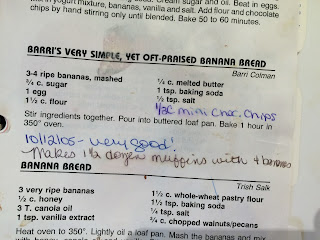 yogurt mixture, bananas, vanilla and salt. Add flour and chocolate
chips by hand stirring only until blended. Bake 50 to 60 minutes.
BARRI'S VERY SIMPLE, YET OFT-PRAISED BANANA BREAD
Barri Colman
3-4 ripe bananas, mashed
¾ c. sugar
1 egg
1½ c. flour
¼ c. melted butter
1 tsp. baking soda
½ tsp. salt
1/2c mini Choc. Chips
Stir ingredients together. Pour into buttered loaf pan. Bake 1 hour in
350° oven.
10/12/05 - very good!
Makes 1½ dozen muffins with 4 bananas
BANANA BREAD
Trish Salk
3 very ripe bananas
½ c. honey
3 T. canola oil
1 tsp. vanilla extract
1½ c. whole-wheat pastry flour
1½ tsp. baking soda
¼ tsp. salt
¾ c. chopped walnuts/pecans
Heat oven to 350°. Lightly oil a loaf pan. Mash the bananas and mix